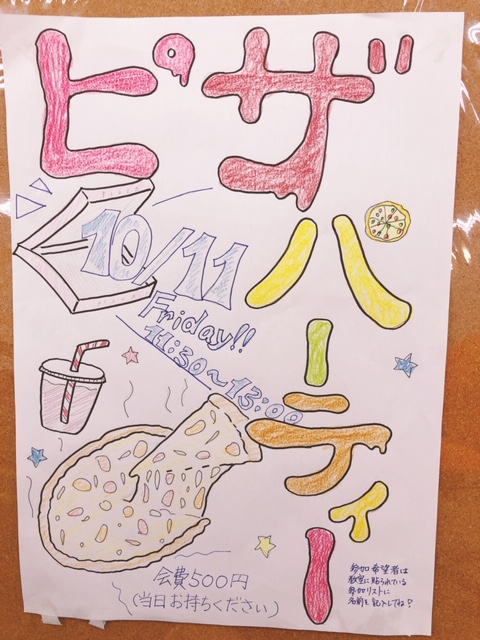 ピザ
パーティー
10/11
Friday!!
11:30~13:00
会費500円
(当日お持ちください)
参加希望者は
教室に貼られている
参加リストに
名前を記入してね?